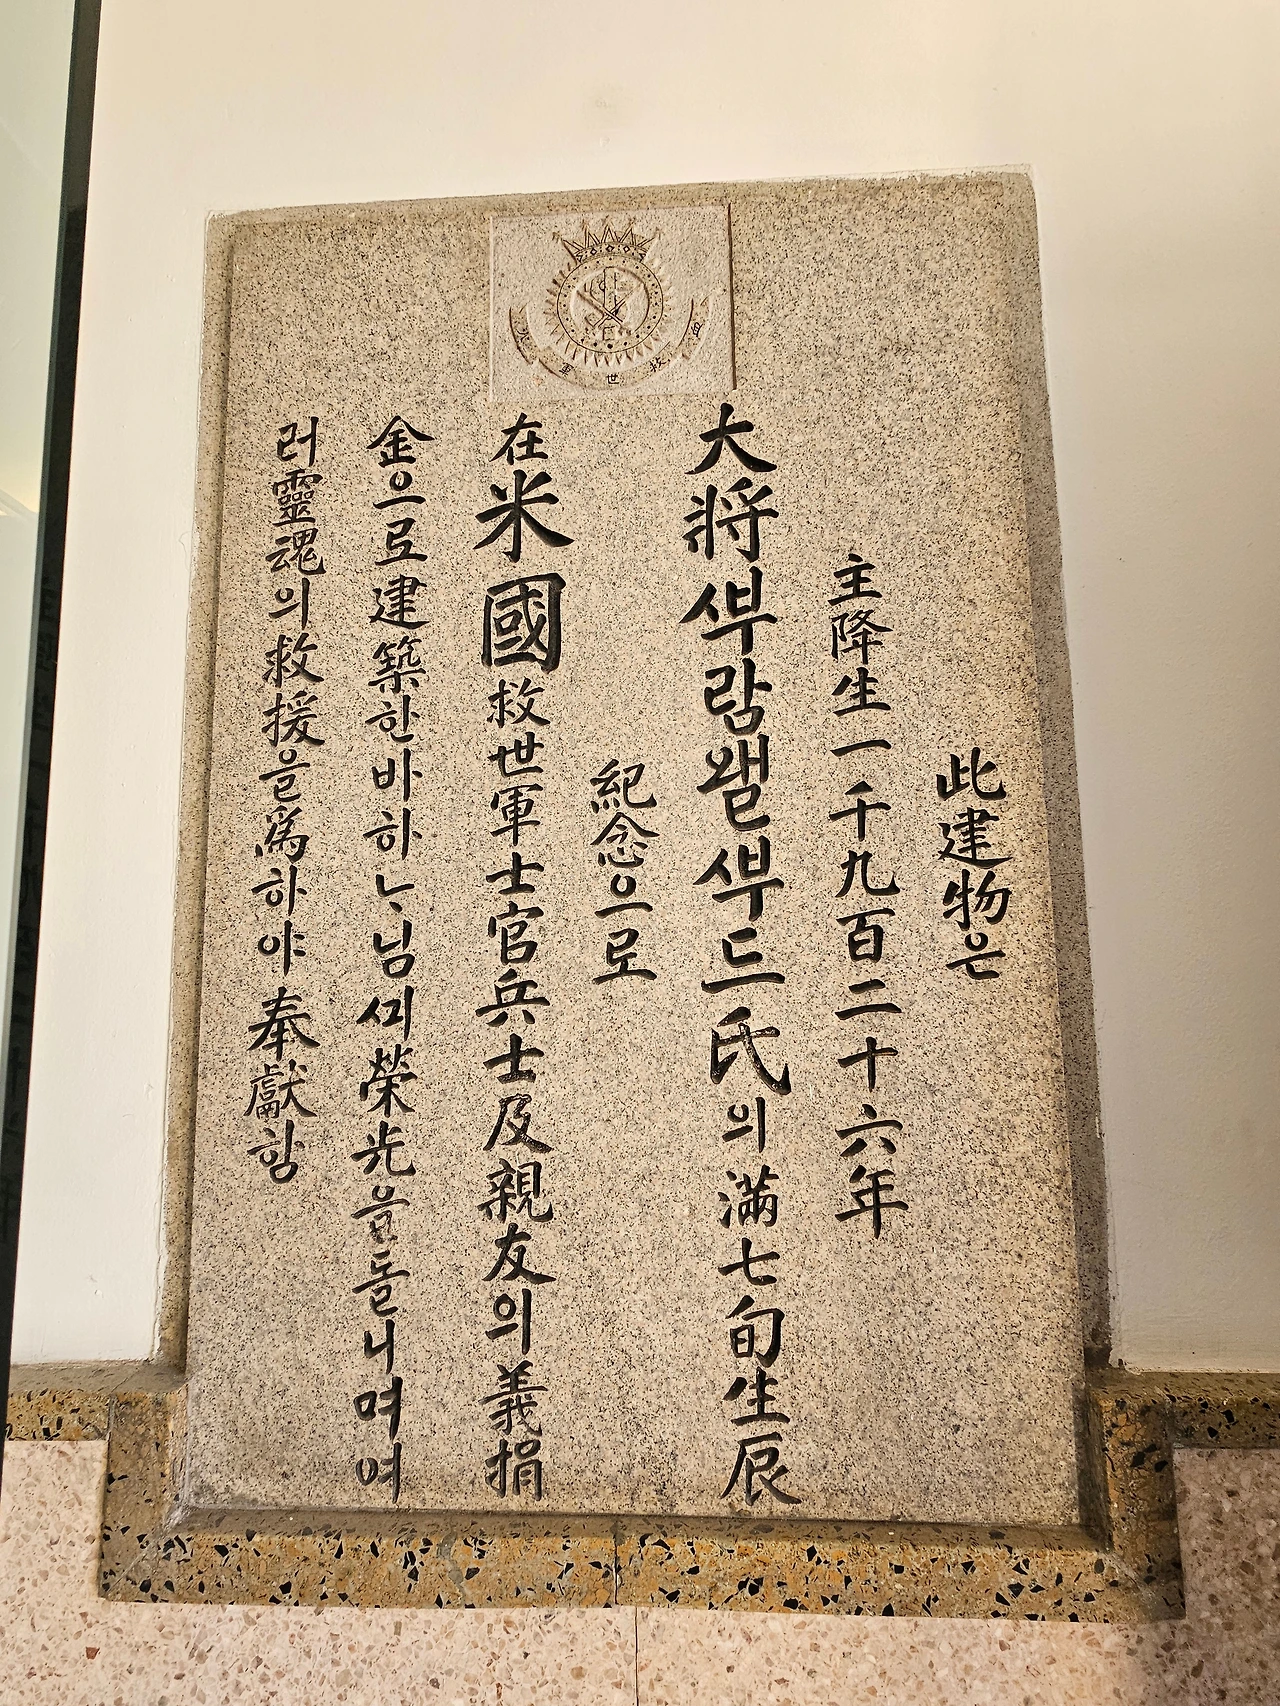 血救世軍火
此建物은
主降生一千九百二十六年
大將ᄲᅮ람웰ᄲᅮ드氏의滿七旬生辰
紀念으로
在米國救世軍士官兵士及親友의義捐
金으로建築한바하ᄂᆞ님ᄭᅴ榮光을돌니며여
러靈魂의救援을爲하야奉獻함